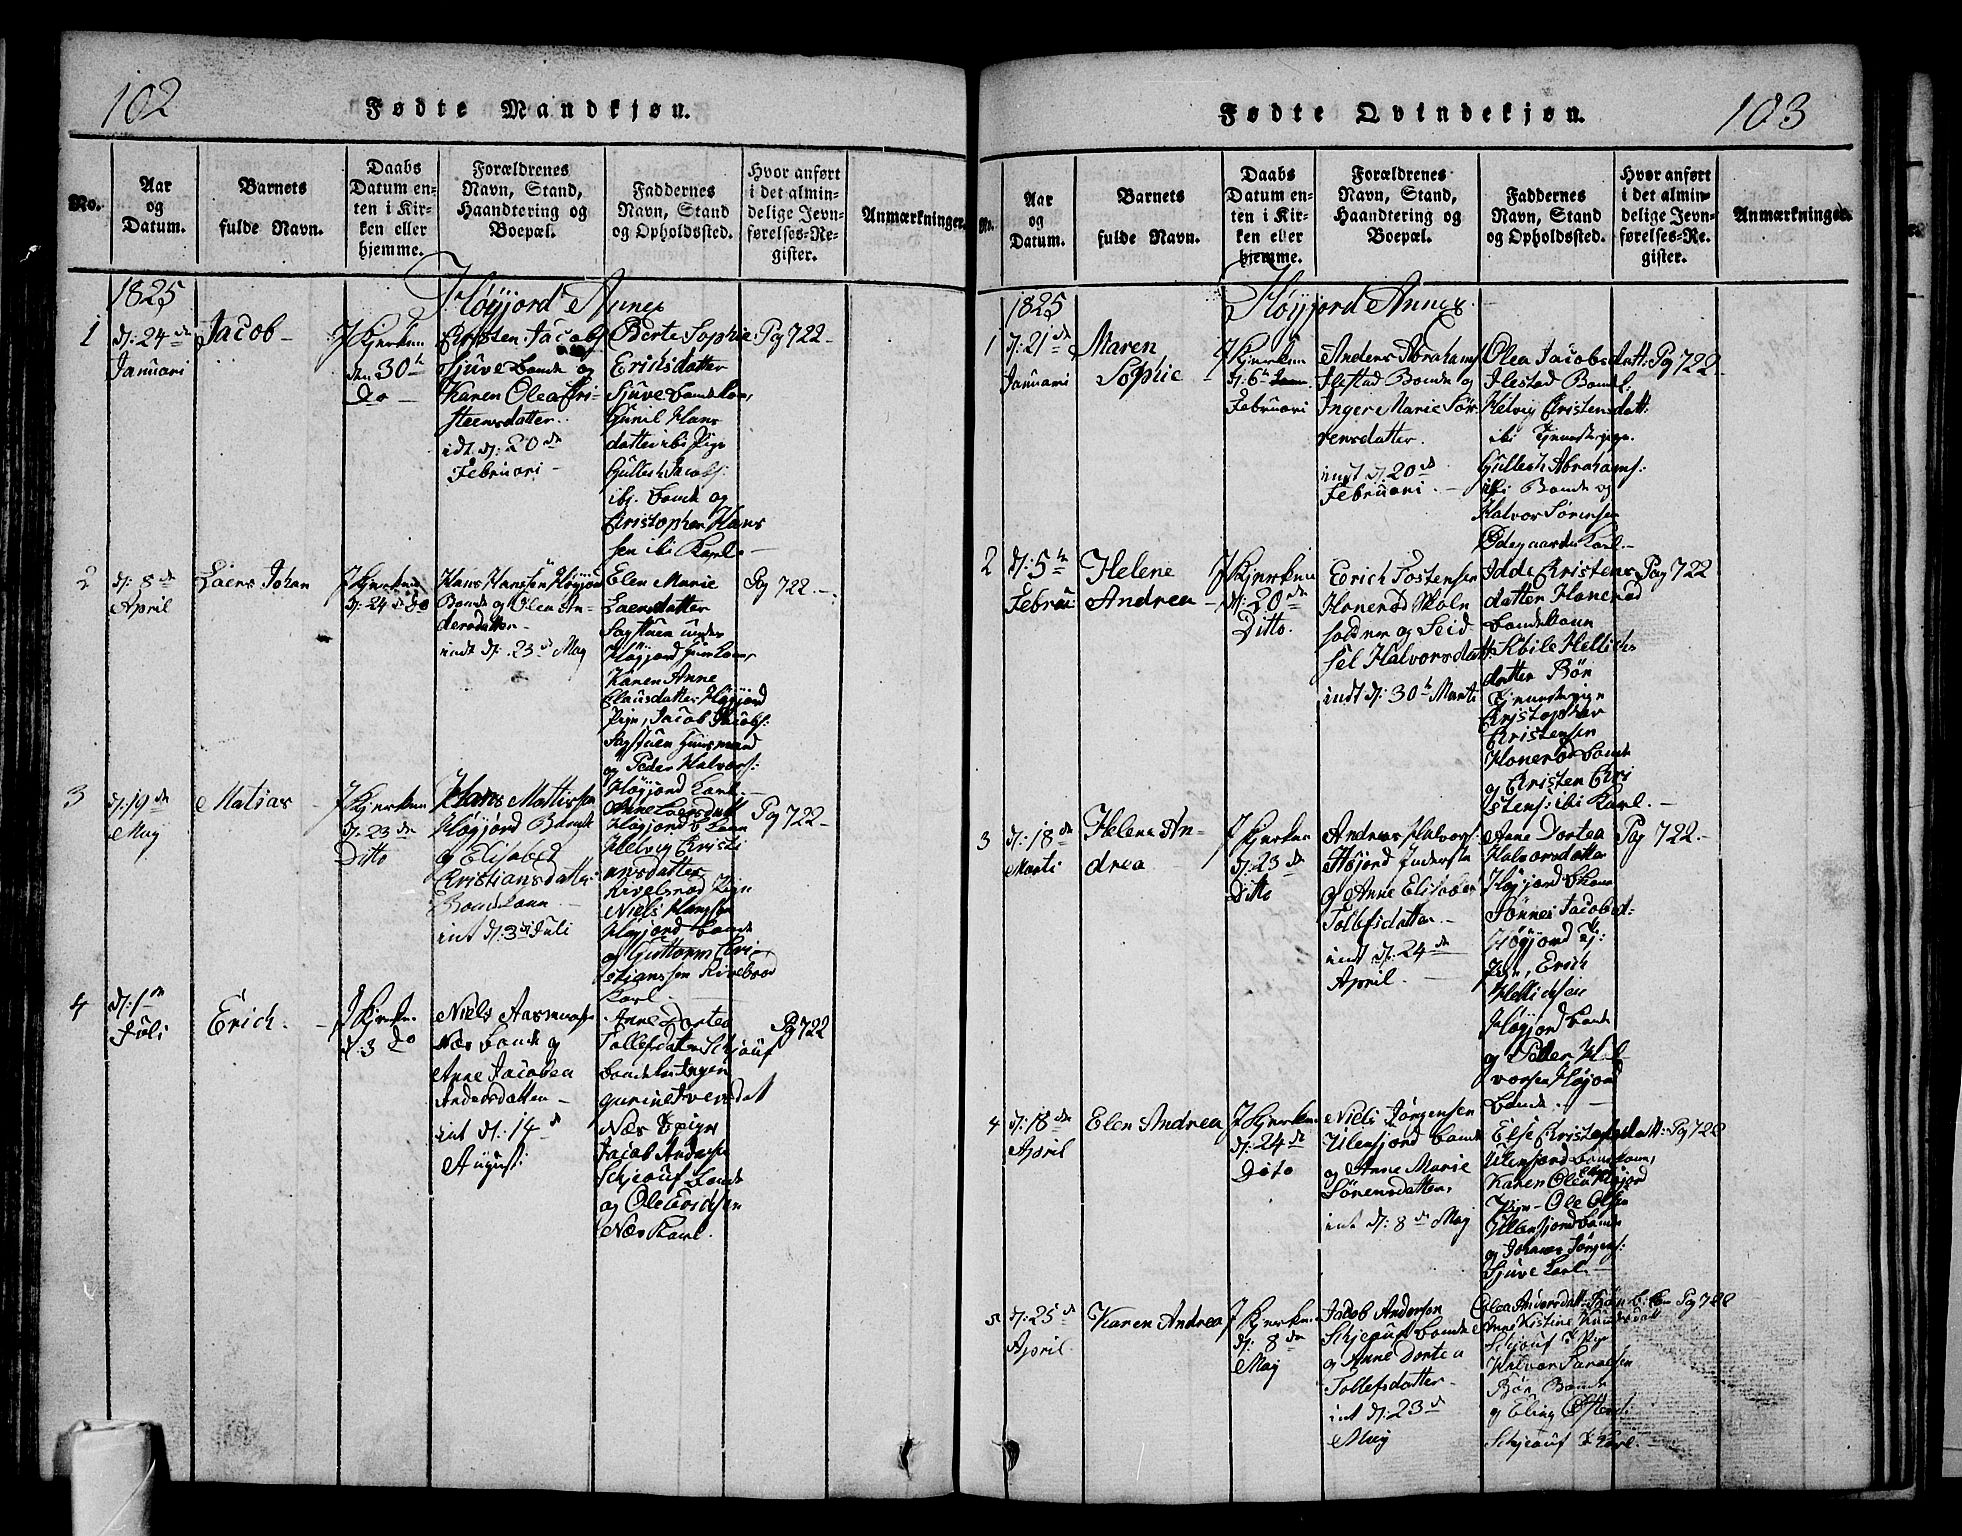 102
Fødte Mandkjøn.
No.
Aar
og
Datum.
Barnets
fulde Navn.
Daabs
Datum en-
ten i Kir-
ken eller
hjemme.
Forældrenes
Navn, Stand,
Haandtering og
Boepæl.
Faddernes
Navn, Stand
og Opholdssted.
Hvor anført
i det almin-
delige Jevn-
førelses-Re-
gister.
Anmærkninger.
1825
Høyjord Annex
1
d: 24de
Januari
Jacob
J Kjerken
den 30te
Do
Cristen Jacobs
Sjuve Bonde og
Karen Olea Cri-
steensdatter.
idt d: 20de
Februari
Berte Sophie
Ericksdatter
Sjuve bondekon,
Gunil Hans
datter ibi Pige
Gullech Jacobs:
ibi bonde og
Cristopher Hans
sen ibi Karl.
Pag 722
2
d: 8de
April
Laers Johan
J Kjerken
d: 24de do
Hans Hansøn Høyjord
Bonde og Olea An-
dersdatter
indt d: 23de May
Elen Marie
Laersdatter
Sagstuen under
Høyjord
Karen Anne
Clausdatter Høyjord
Pige, Jacob Jacobs:
Sagstuen Huusmand
og Peder Halvors:
Høyjord Karl.
Pag 722
3
d: 19de
May
Matias
J Kjerken
d: 23de
Ditto
Hans Mattissen
Høyjord Bonde
og Elisabed
Cristiansdatter
Bondekonn
int d: 3de Juli
Anne Laersdatt
Høyjord b konn
Helvig Cristi
ansdatter
Rivelsrød Pige
Niels Hansøn
Høyjord bonde
og Guttorm Cri-
stianssen Rivelsrød
Karl
Pag 722
4
d: 1de
Juli
Erich.
J Kjerken
d: 3 do
Niels Aasmuns
Næs bonde og
Anne Jacobea
Andersdatter
int d: 14de
August:
Anne Dortea
Tollefsdatter Schjouf
bondekon Ingen
gurine Iversdat
Næs Pige
Jacob Anderse
Schjeouf Bonde
og Ole Evidsen
Næs Karl.
Pag 722
Fødte Qvindekjøn.
103
No.
Aar
og
Datum.
Barnets
fulde Navn.
Daabs
Datum en-
ten i Kir-
ken eller
hjemme.
Forældrenes
Navn, Stand,
Haandtering og
Boepæl.
Faddernes
Navn, Stand
og Opholdssted.
Hvor anført
i det almin-
delige Jevn-
førelses-Re-
gister.
Anmærkninger.
1825
Høyjord Annex.
1
d: 21de
Januari
Maren
Sophie
J Kjerken
d: 6te
Februari
Anders Abrahams
Ilestad Bonde og
Inger Marie Sør
rensdatter.
indt d: 20de
Februari.
Olea Jacobsdatt:
Ilestad Bonde
Helvig Cristensdatt:
ibi Tjenestepige.
Gullech Abrahams:
ibi Bonde og
Halvor Sørensen
Ødegaarden Karl.
Pag 722
2
d: 5te
Februa
Helene
Andrea
J Kjerken
d: 20de
Ditto.
Erich Tostensen
Honerød Skoln
soldner og Seid
sel Halvorsdatt:
indt d: 30te Marti
Idde Cristens
datter Honerød
bondekonn
Kbile Hellichs
datter Bøn
Tjenestepige
Cristopher
Cristensen
Honerød bonde
og Cristen Cri
stens: ibi Karl.
Pag 722
3
d: 18de
Marti
Helena An-
drea
J Kjerken
d: 23de
Ditto
Andreas Halvors:
Høyjord Inderste
og Anne Elisabet
Tollefsdatter
int d: 24de
April.
Anne Dortea
Halvorsdatter
Høyjord b kone
Tonnes Jacobsdt:
Høyjord Tj:
Pige, Erich
Hellichsen
Høyjord bonde
og Peder Hal
vorsen Høyjord
bonde.
Pag 722.
4
d: 18de
April
Elen Andrea
J Kjerken
d: 24de
Ditto
Niels Jørgensen
Ulensjord bonde
og Anne Marie
Sørensdatter,
int d: 8de May
Else Cristensdatt:
Ulensjord bondekonn,
Karen Olea Høyjord
Pige – Ole Olsen
Ullensjord bonde
og Johanes Jørgens:
Sjuve Karl.
Pag 722
5
d: 25de
April.
Karen Andrea
J Kjerken
d: 8de
May
Jacob Anderson
Schjeouf bonde
og Anne Dortea
Tollefsdatter
int d: 23de
May
Olea Andersdatt:
Anne Kistine Knudsdatt
Schjouf T Pige
Halvor
Bøn Bonde
og Eling
Schjeouf Karl.
Pag 722